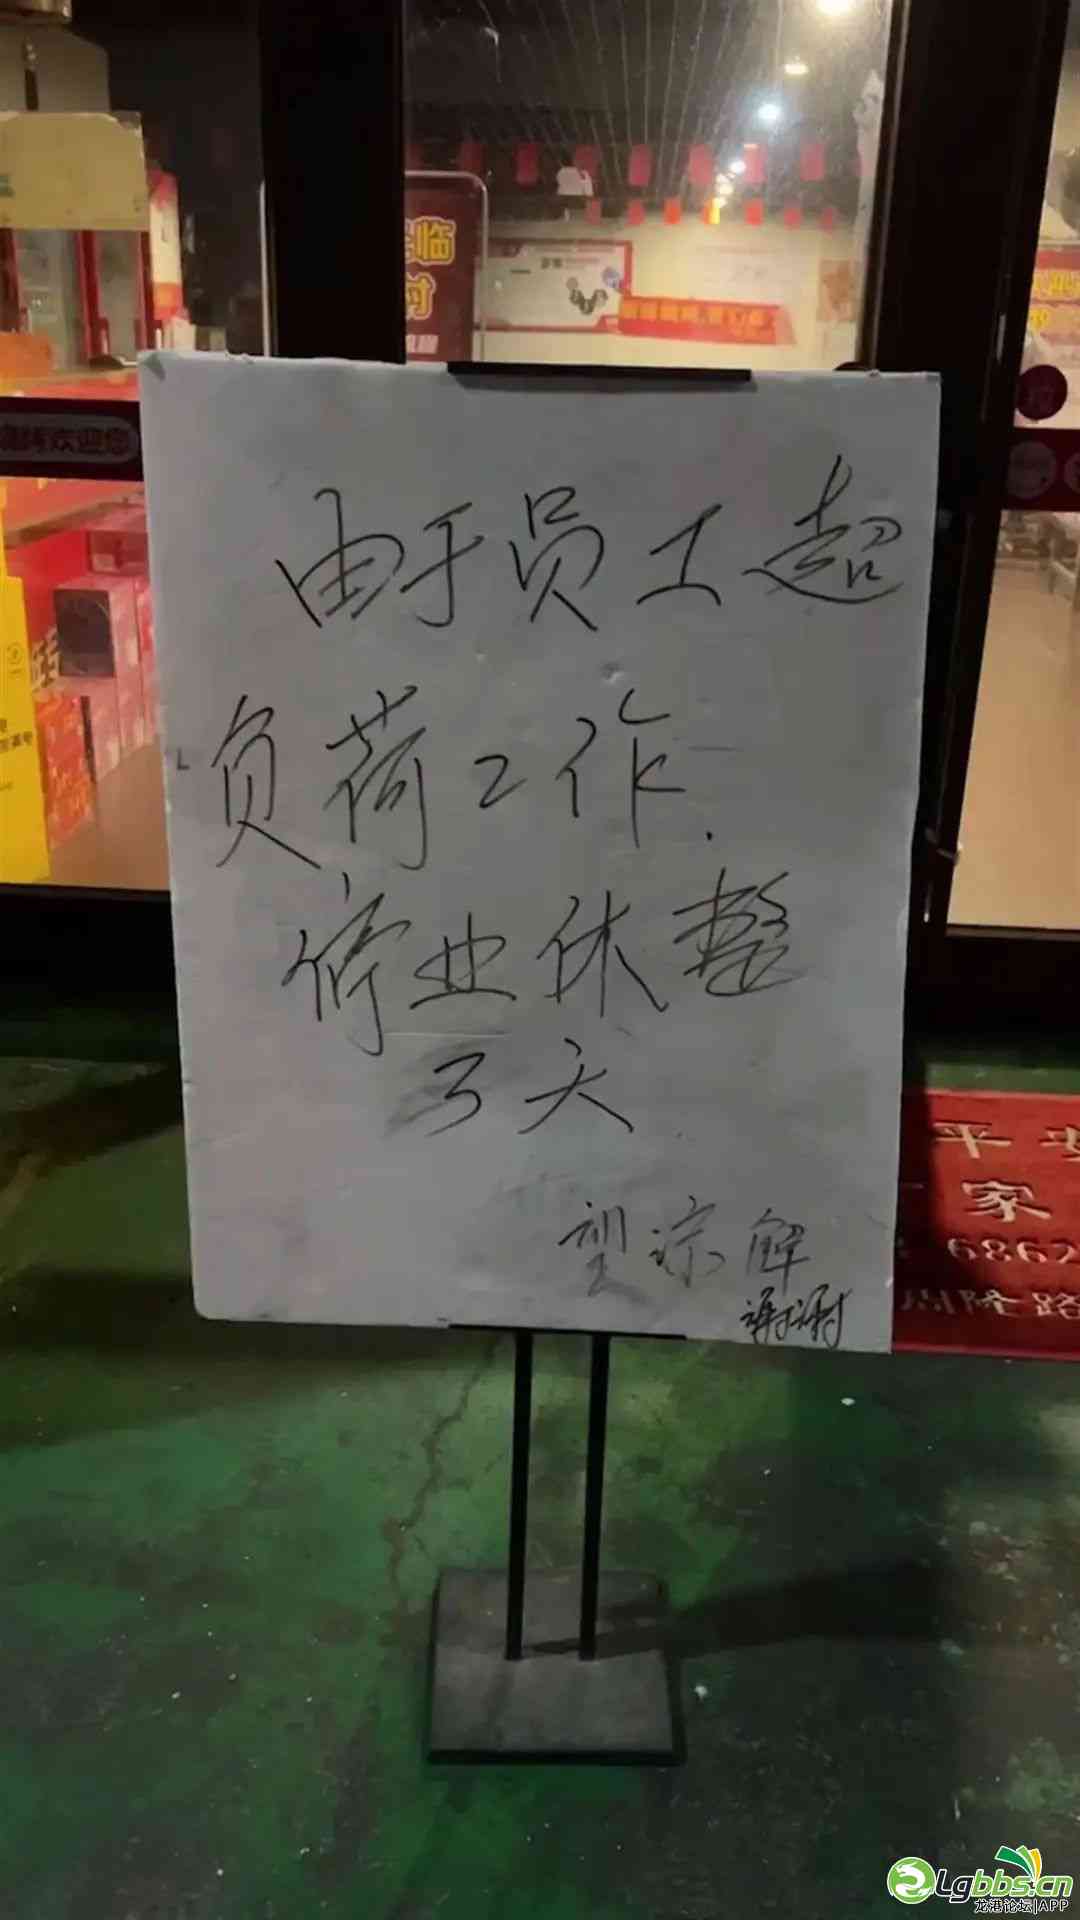 临
时
欢迎您
由于员工超
负荷工作.
停业休整
3天
望谅解
谢谢
平安
家
6862
隆路
Lgbbs.cn
龙港论坛|APP